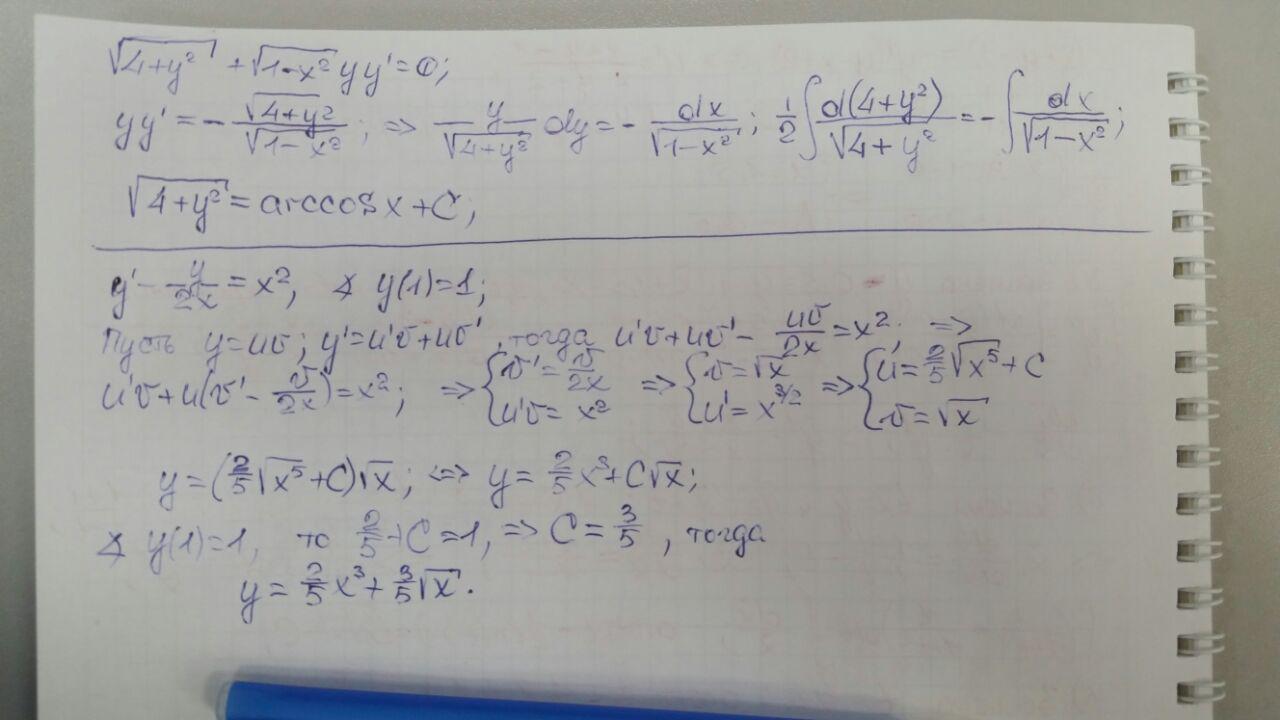 √(4+y²) + √(1-x²) yy' = 0;
yy' = - √(4+y²)/√(1-x²); => y/√(4+y²) dy = - dx/√(1-x²); 1/2 ∫ d(4+y²)/√(4+y²) = - ∫ dx/√(1-x²);
√(4+y²) = arccos x + C;
y' - y/2x = x², ∡ y(1)=1;
Пусть y=uv; y'=u'v+uv', тогда u'v+uv' - uv/2x = x²; =>
u'v+u(v' - v/2x) = x²; => { v' = v/2x, u'v = x² => { v=√x, u' = x^(3/2) => { u = 2/5 √(x⁵) + C, v=√x
y = (2/5 √(x⁵) + C)√x; <=> y = 2/5 x³ + C√x;
∡ y(1)=1, то 2/5 + C = 1, => C = 3/5, тогда
y = 2/5 x³ + 3/5 √x.